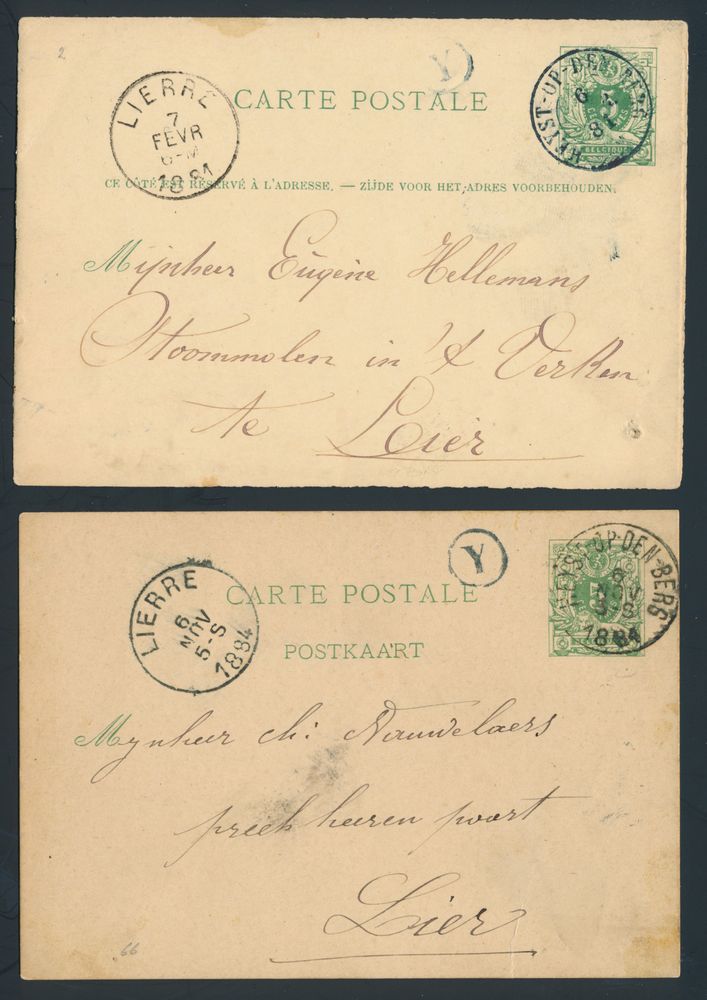 2
Y
LIERRE
7
FEVR
6-M
1881
CARTE POSTALE
HEYST-OP-DEN-BERG
6
8
BELGIQUE
CE CÔTÉ EST RÉSERVÉ À L'ADRESSE. — ZIJDE VOOR HET ADRES VOORBEHOUDEN.
Mijnheer Eugène Hellemans
Stoommolen in 't Verken
te Lier
Y
LIERRE
6
NOV
5-S
1884
CARTE POSTALE
HEYST-OP-DEN-BERG
6
NOV
3-S
1884
POSTKAART
Mynheer ch: Nauwelaers
preek heeren poort
Lier
66